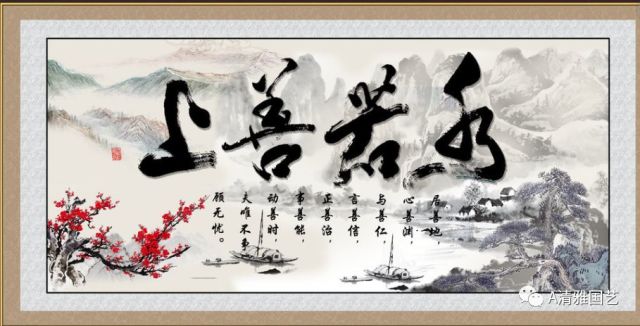 上善若水
居善地，
心善渊，
与善仁，
言善信，
正善治，
事善能，
动善时，
夫唯不争
顾无忧。
A清雅国艺